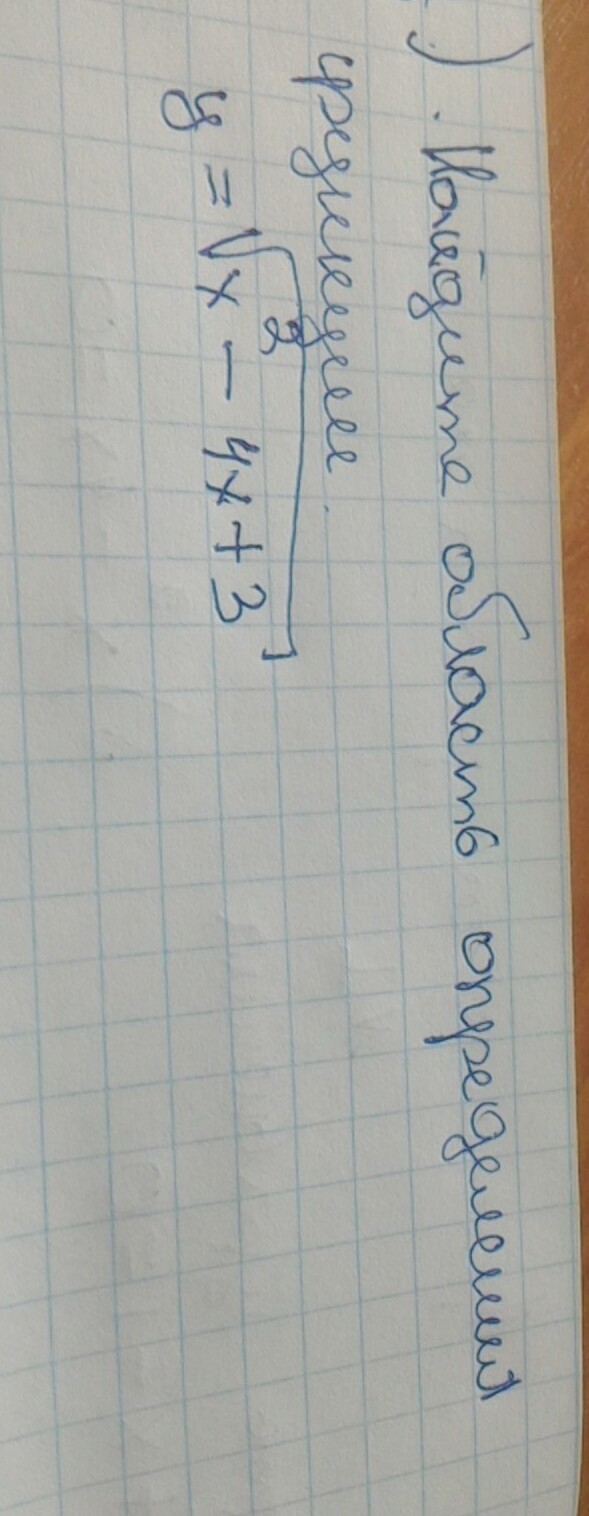 ). Найдите область определения
функции
y = √x² - 4x + 3